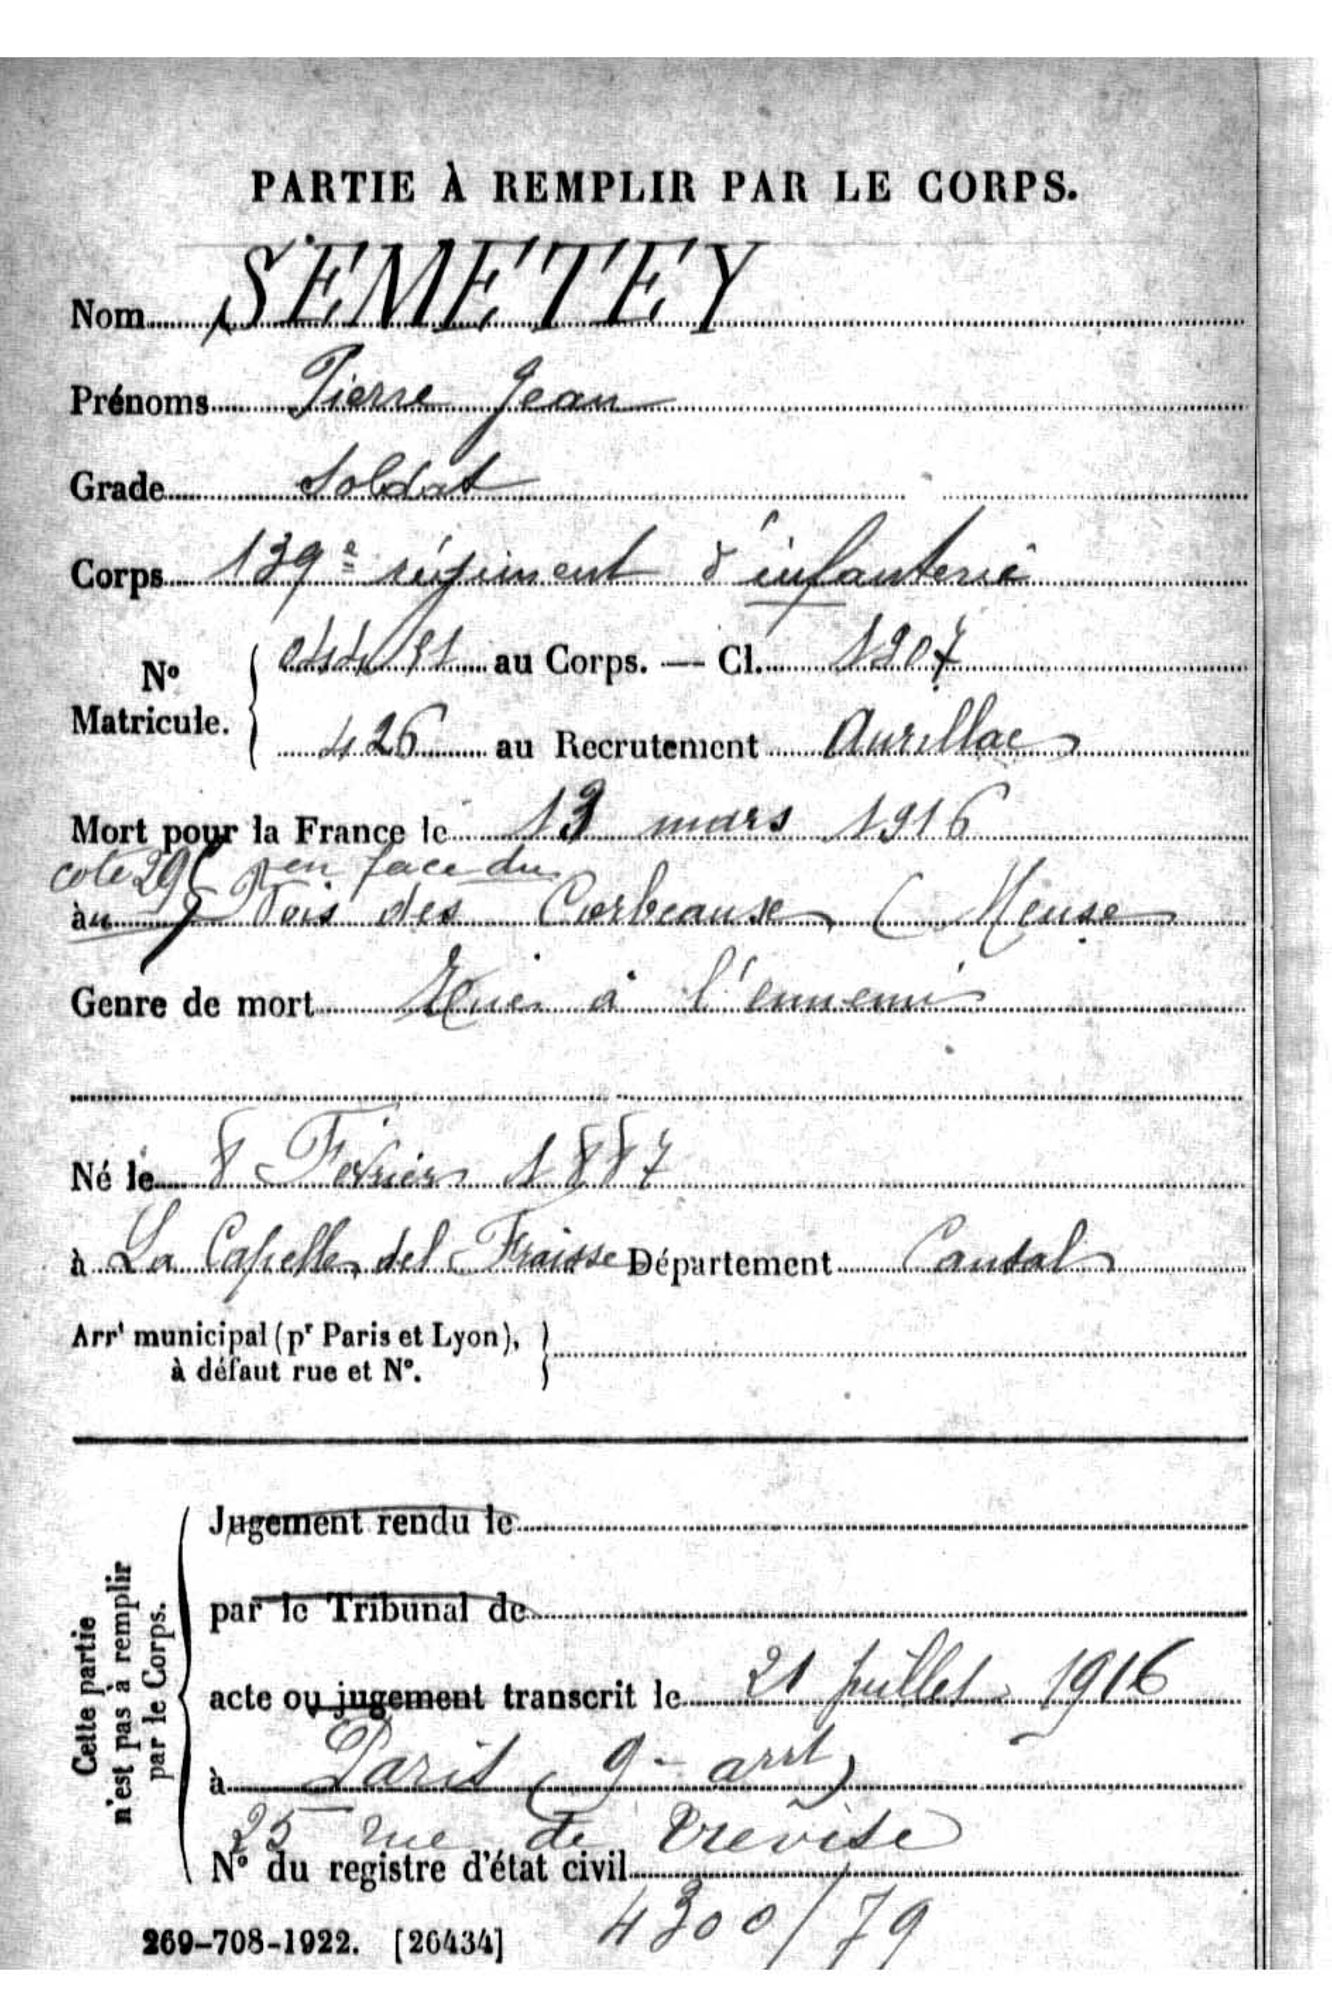 PARTIE À REMPLIR PAR LE CORPS.
Nom SEMETEY
Prénoms Pierre Jean
Grade Soldat
Corps 139e régiment d'infanterie
No Matricule. 04491 au Corps. — Cl. 1907
426 au Recrutement Aurillac
Mort pour la France le 13 mars 1916
cote 295 en face du
au Bois des Corbeaux (Meuse
Genre de mort Tué à l'ennemi
Né le 8 Février 1887
à La Capelle del Fraisse Département Cantal
Arrt municipal (pr Paris et Lyon),
à défaut rue et No.
Cette partie
n'est pas à remplir
par le Corps.
Jugement rendu le
par le Tribunal de
acte ou jugement transcrit le 21 juillet 1916
à Paris (9e arrt)
25 rue de Trévise
No du registre d'état civil
4300/79
269-708-1922. [26434]